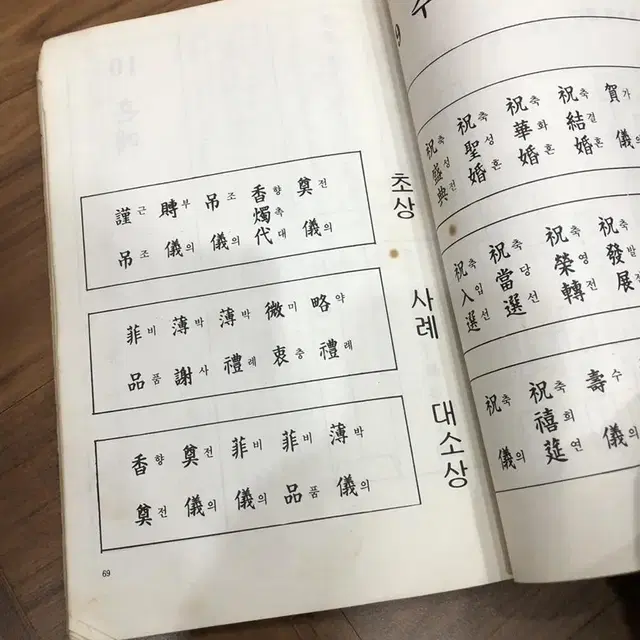 賀하儀의
祝축結결婚혼
祝축華화婚혼
祝축聖성婚혼
祝축盛성典전
祝축發발展전
祝축榮영轉전
祝축當당選선
祝축入입選선
壽수儀의
祝축禧희筵연
祝축儀의
초상
奠전儀의
香향燭촉代대
吊조儀의
賻부儀의
謹근吊조
사례
略약禮례
微미衷충
薄박禮례
薄박謝사
菲비品품
대소상
薄박儀의
菲비品품
菲비儀의
奠전儀의
香향奠전
69